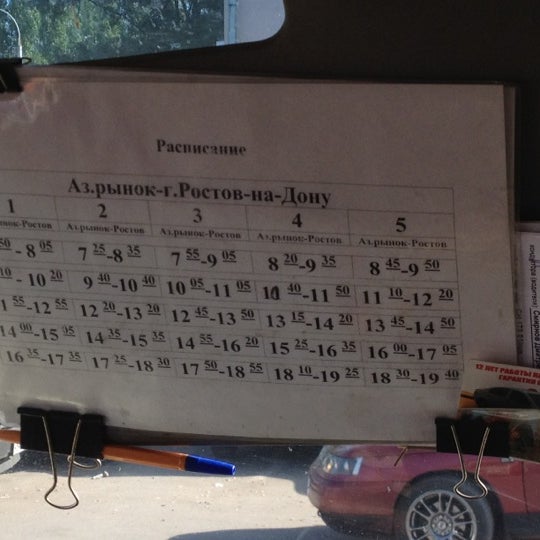 Расписание
Аз.рынок-г.Ростов-на-Дону
1 2 3 4 5
Аз.рынок-Ростов Аз.рынок-Ростов Аз.рынок-Ростов Аз.рынок-Ростов
50 - 8 05 7 25-8 35 7 55-9 05 8 20-9 35 8 45-9 50
10 - 10 20 9 40-10 40 10 05-11 05 10 40-11 50 11 10-12 20
55-12 55 12 20-13 20 12 45-13 50 13 15-14 20 13 45-14 50
14 00-15 05 14 35-15 35 14 55-16 20 15 25-16 35 16 00-17 05
16 35-17 35 17 25-18 30 17 50-18 55 18 10-19 25 18 30-19 40
12 ЛЕТ РАБОТЫ
ГАРАНТИИ